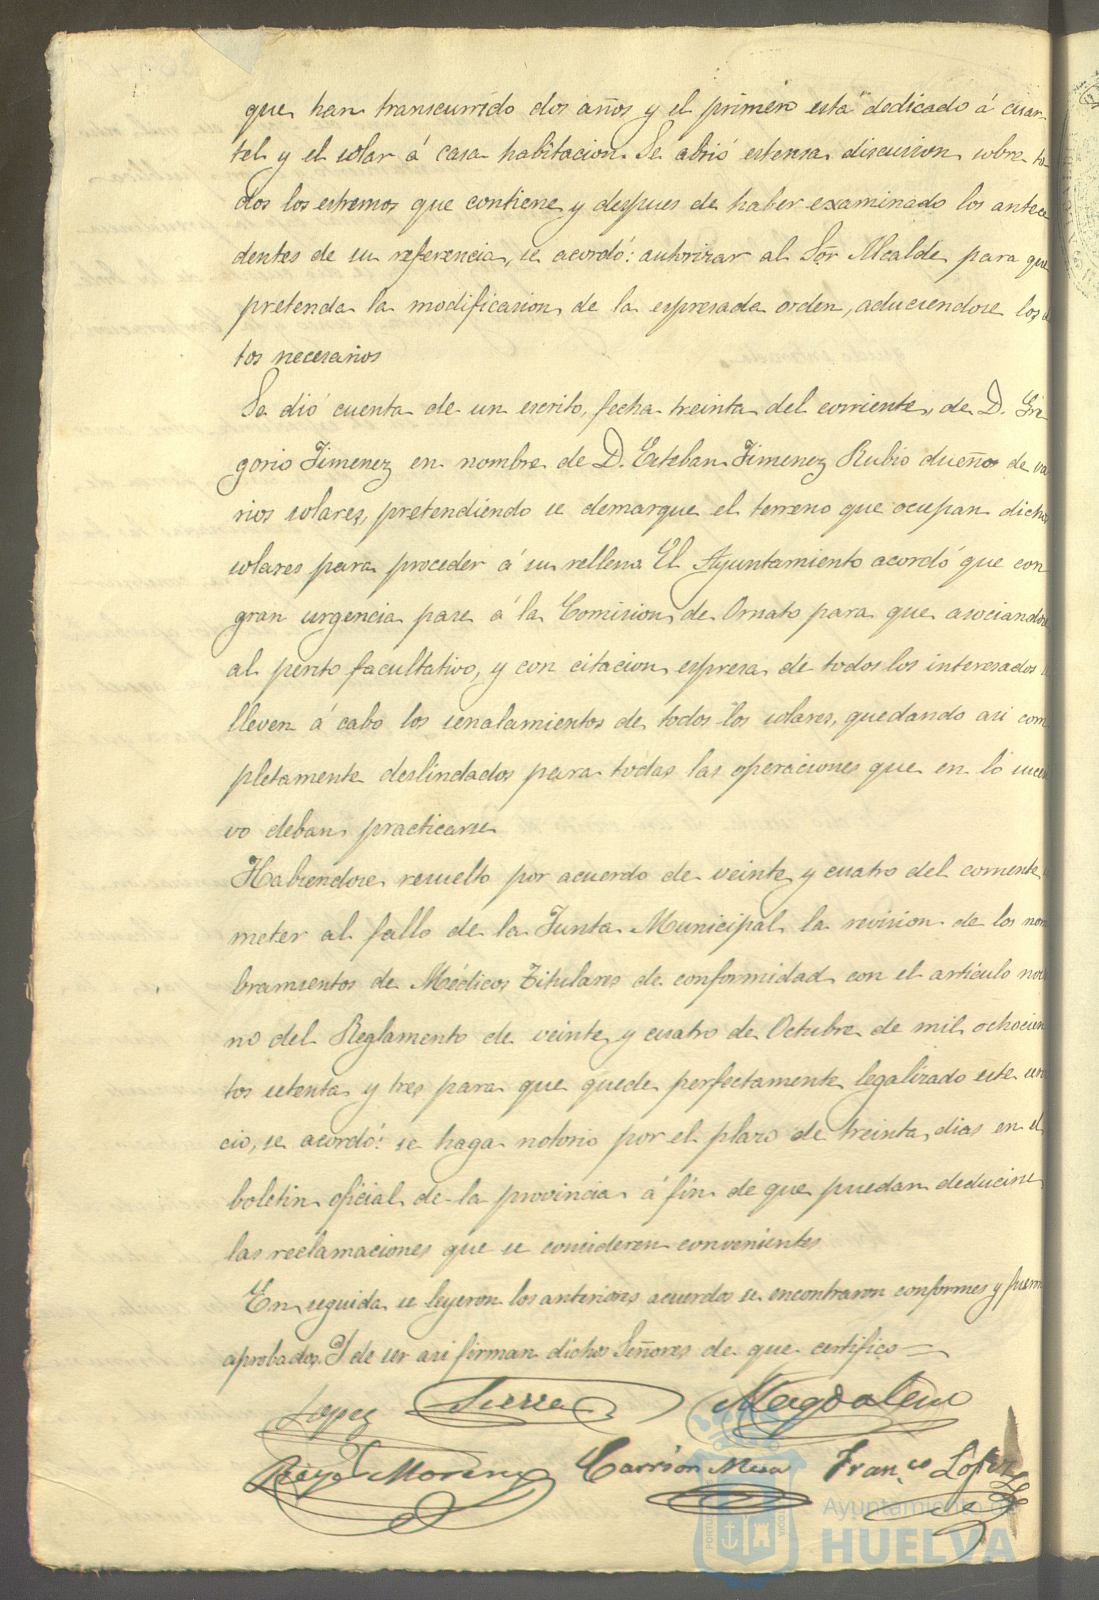 que han transcurrido dos años y el primero esta dedicado á cuar-
tel y el solar á casa habitacion. Se abrió estensa discusion sobre to
dos los estremos que contiene y despues de haber examinado los antece
dentes de su referencia, se acordó: autorizar al Sõr Alcalde para que
pretenda la modificasion de la espresada orden, aduciendose los
tos necesarios
Se dió cuenta de un escrito, fecha treinta del corriente, de D. Gre
gorio Jimenez en nombre de D. Esteban Jimenez Rubio dueño de va
rios solares, pretendiendo se demarque el terreno que ocupan dichos
solares para proceder á su relleno. El Ayuntamiento acordó que con
gran urgencia pase á la Comision de Ornato para que asociandose
al perito facultativo, y con citacion espresa de todos los interesados
lleven á cabo los senalamientos de todos los solares, quedando asi com
pletamente deslindados para todas las operaciones que en lo sucesi
vo deban practicarse
Habiendose resuelto por acuerdo de veinte y cuatro del corriente
meter al fallo de la Junta Municipal la revision de los nom
bramientos de Médicos Titulares de conformidad con el artículo nove
no del Reglamento de veinte y cuatro de Octubre de mil ochocien
tos setenta y tres para que quede perfectamente legalizado este ser
cio, se acordó: se haga notorio por el plazo de treinta dias en el
boletin oficial de la provincia á fin de que puedan deducirse
las reclamaciones que se consideren convenientes
En seguida se leyeron los anteriores acuerdos se encontraron conformes y fueron
aprobados. Y de ser asi firman dichos Señores de que certifico =
Lopez Sierra Magdalena
Reyes Moreno Carrion Mesa Fran.co López
Ayuntamiento de
HUELVA